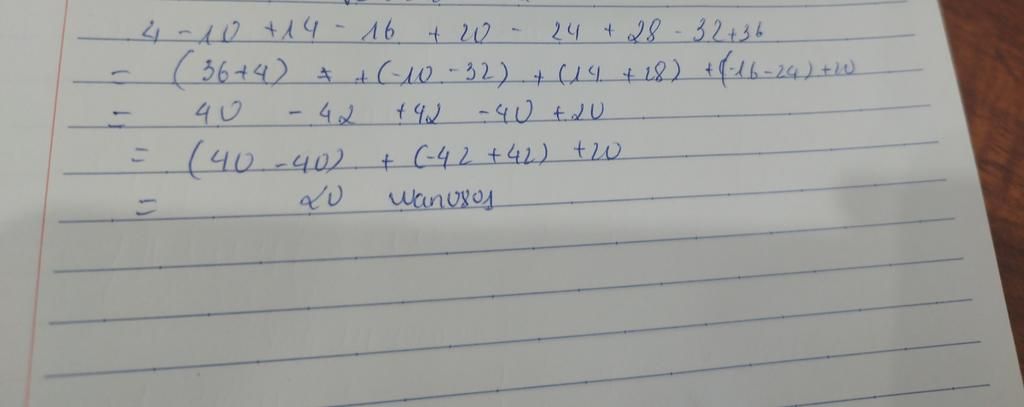 4 - 10 + 14 - 16 + 20 - 24 + 28 - 32 + 36
= (36+4) + (-10 - 32) + (14 + 28) + (-16 - 24) + 20
= 40 - 42 + 42 - 40 + 20
= (40 - 40) + (-42 + 42) + 20
= 20